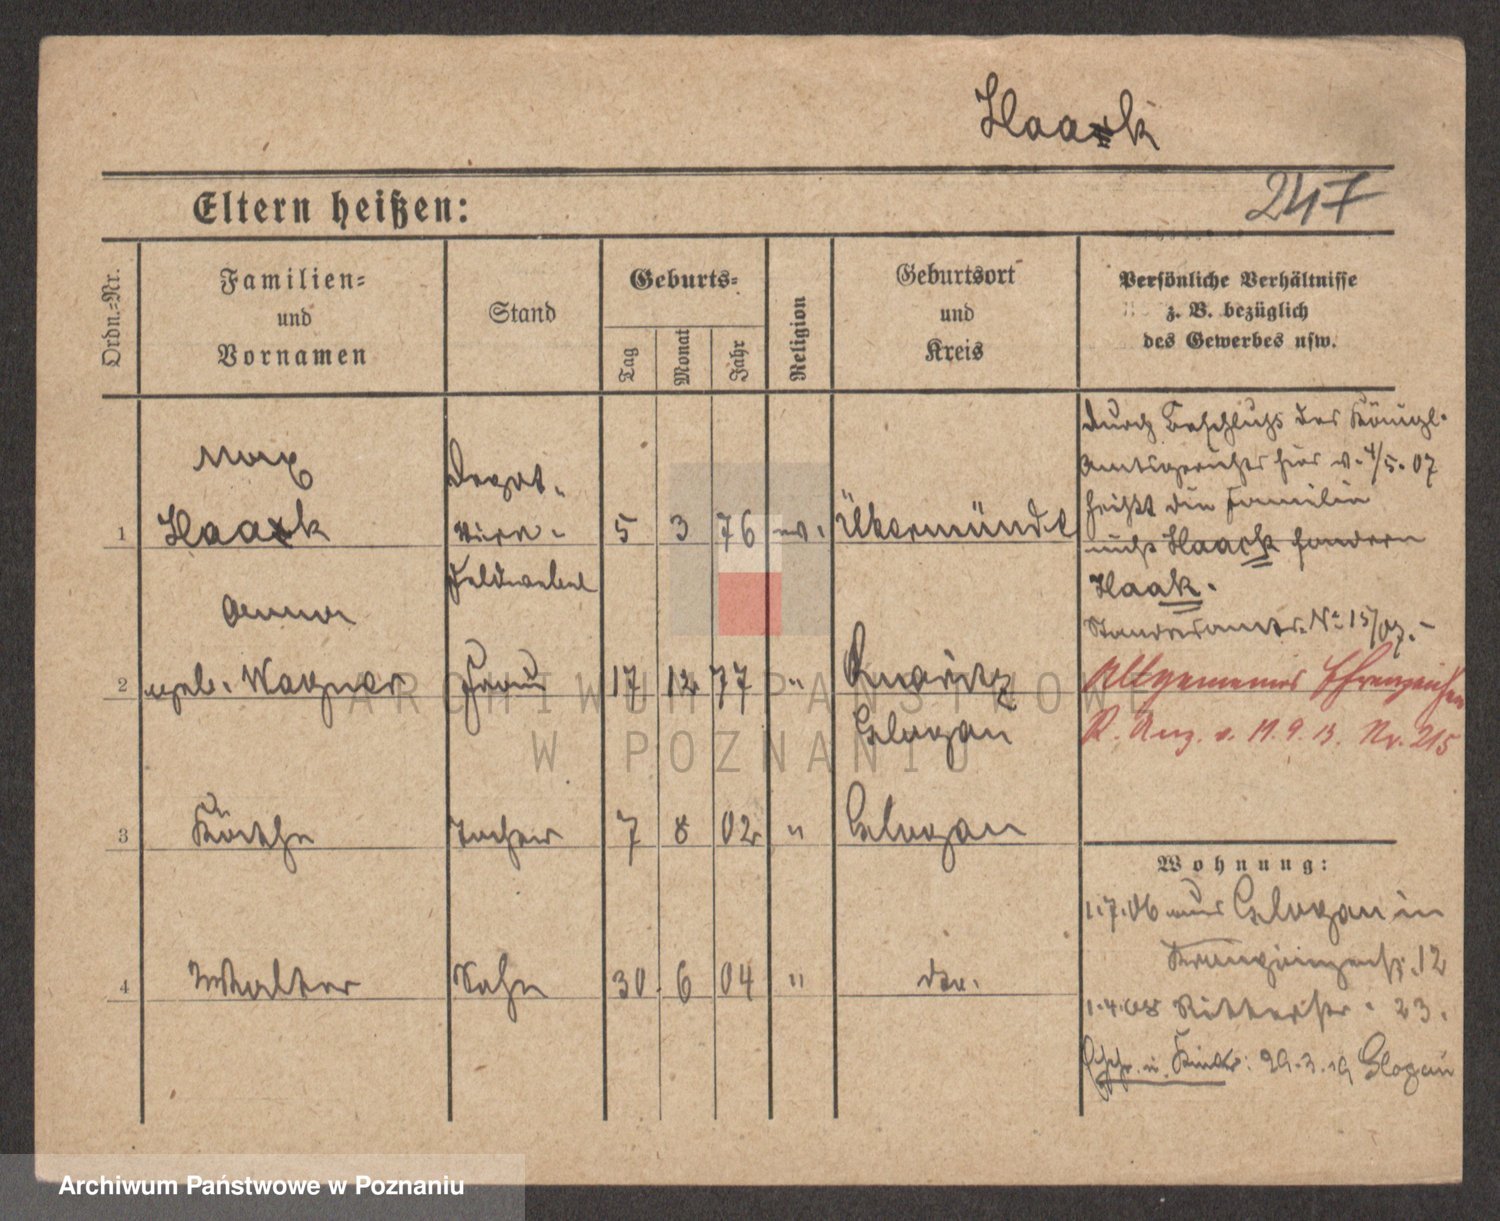 Haak
247
Eltern heißen:
Ordn.-Nr.
Familien-
und
Vornamen
Stand
Geburts-
Tag
Monat
Jahr
Religion
Geburtsort
und
Kreis
Persönliche Verhältnisse
z. B. bezüglich
des Gewerbes usw.
1
Max
Haak
Depot-
Vize-
Feldwebel
5
3
76
ev.
Ückermünde
2
Anna
geb. Wagner
Frau
17
12
77
"
Quaritz
Glogau
3
Käthe
Tochter
7
8
02
"
Glogau
4
Walter
Sohn
30.
6
04
"
do.
Durch Beschluß des Königl.
Amtsgerichts hier v. 4/5. 07
heißt die Familie
nicht Haack sondern
Haak.
Standesamt. No 15/07. -
Allgemeines Ehrenzeichen
R. Anz. v. 11. 9. 13. Nr. 215
Wohnung:
1.7.06 aus Glogau in
12
1.4.08 Ritterstr. 23.
u. Kinder: 29.3.19 Glogau
ARCHIWUM PAŃSTWOWE
W POZNANIU
Archiwum Państwowe w Poznaniu